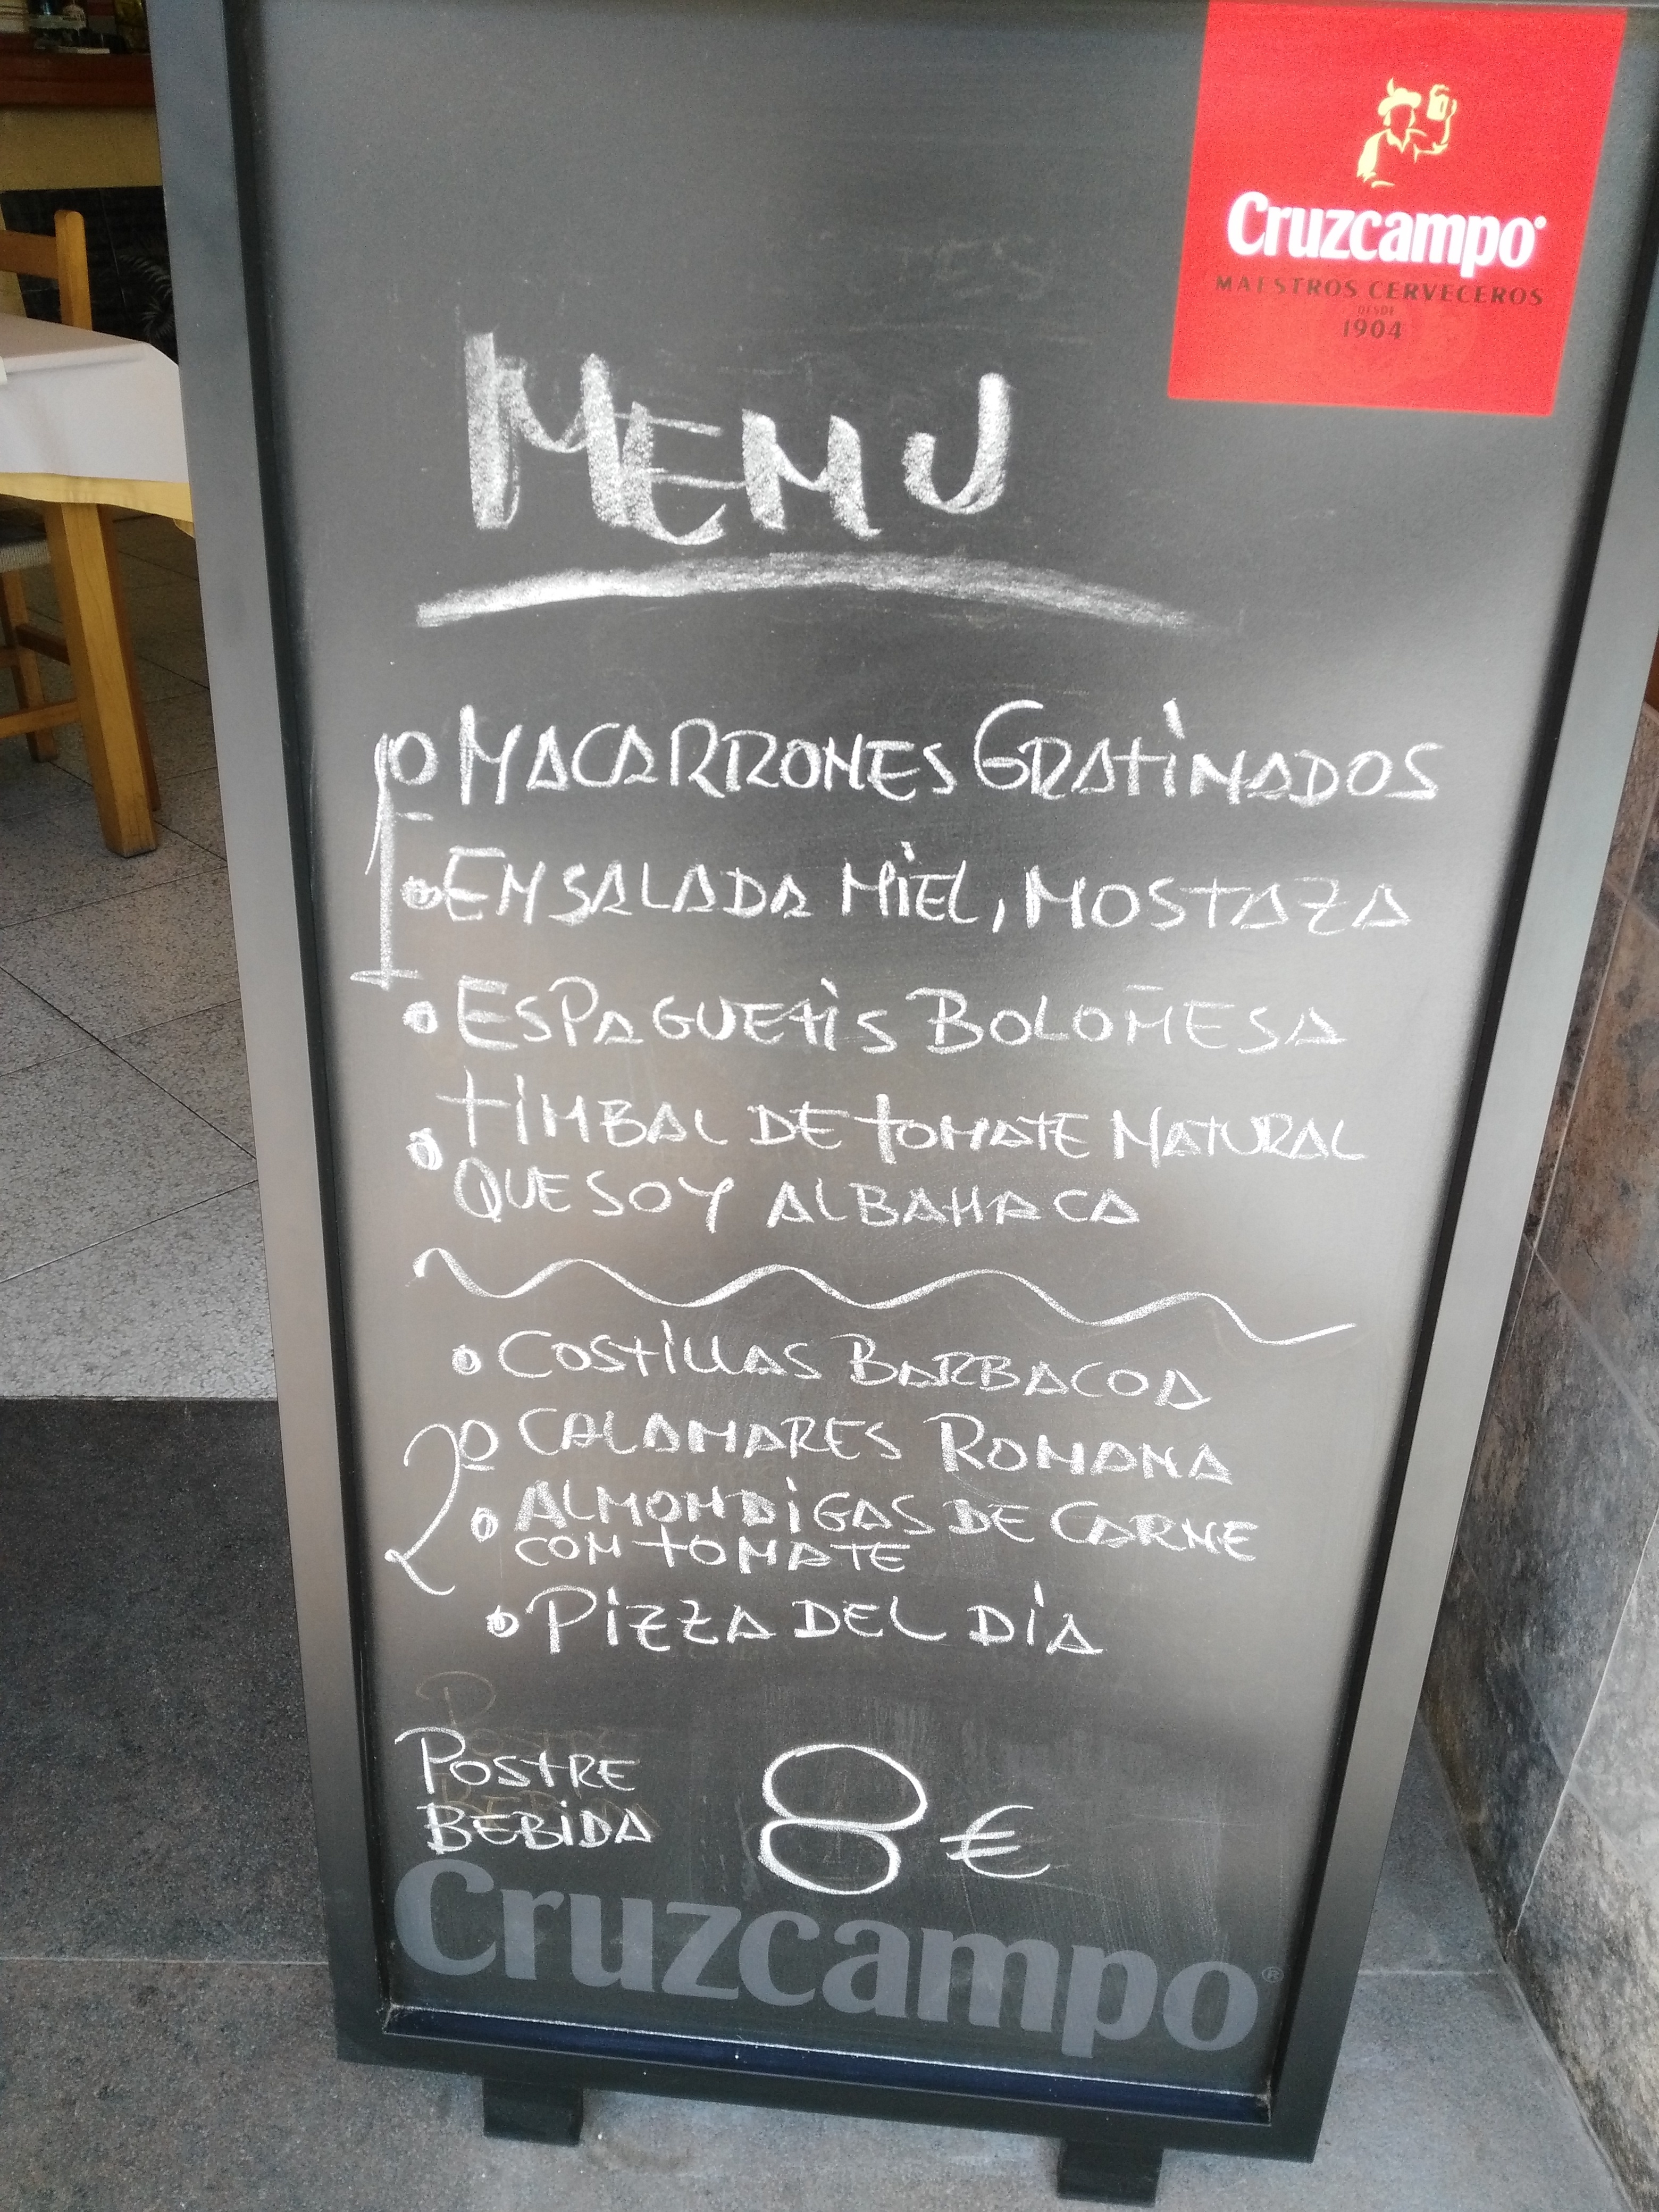 Cruzcampo
MAESTROS CERVECEROS
DESDE
1904
MENU
1º MACARRONES GRATINADOS
ENSALADA MIEL, MOSTAZA
ESPAGUETIS BOLOÑESA
TIMBAL DE TOMATE NATURAL
QUESO Y ALBAHACA
COSTILLAS BARBACOA
2º CALAMARES ROMANA
ALMONDIGAS DE CARNE
CON TOMATE
PIZZA DEL DIA
POSTRE
BEBIDA
8 €
Cruzcampo®